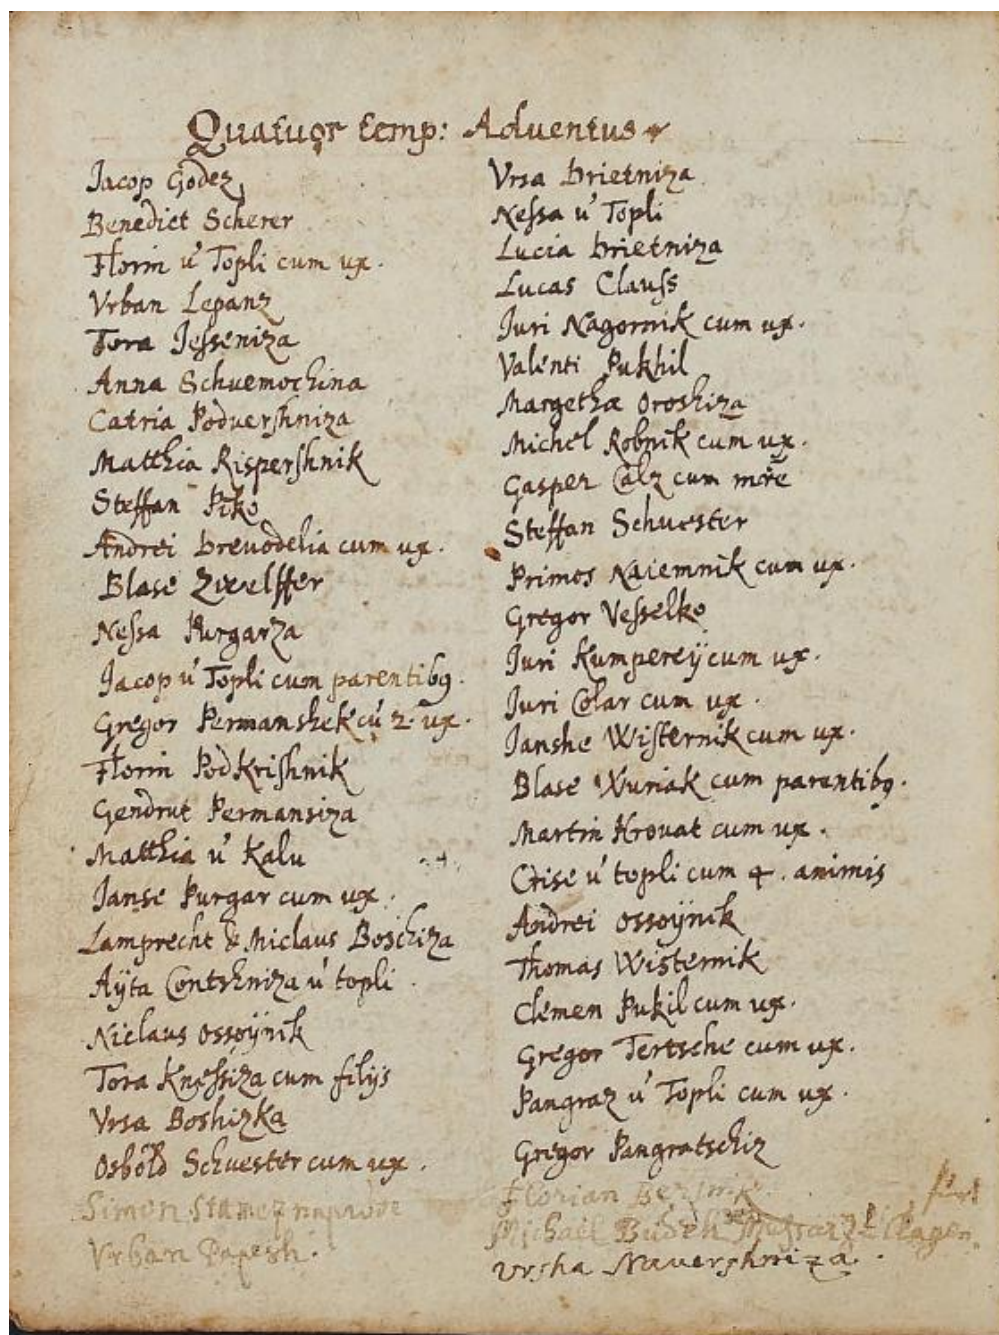 Quatuor temp: Adventus
Jacop Godez
Benedict Scherer
Florin ú Topli cum ux.
Vrban Lepanz
Tora Jesseniza
Anna Schuemochina
Catria Poduershniza
Matthia Rispershnik
Steffan Piko
Andrei Dreuodelia cum ux.
Blase Zwelffer
Nessa Purgarza
Jacop ú Topli cum parentibq.
Gregor Permanshek cú 2. ux.
Florin Podkrishnik
Gendrut Permansiza
Matthia ú Kalu
Janse Purgar cum ux.
Lamprecht & Niclaus Boschiza
Aÿta Contshniza ú topli
Niclaus Ossoÿnik
Tora Knessiza cum filÿs
Vrsa Boshizka
Osbold Schuester cum ux.
Simon
Vrban Papesh.
Vrsa Drietniza
Nessa ú Topli
Lucia Drietniza
Lucas Clauss
Juri Nagornik cum ux.
Valenti Pukhil
Margetha Oroshiza
Michel Robnik cum ux.
Gasper Calz cum mr̃e
Steffan Schuester
Primos Naiemnik cum ux.
Gregor Vesselko
Juri Kumpereÿ cum ux.
Juri Colar cum ux.
Janshe Wisternik cum ux.
Blase Wuriak cum parentibq.
Martin Krouat cum ux.
Crise ú topli cum 4. animis
Andrei Ossoÿnik
Thomas Wisternik
Clemen Pukil cum ux.
Gregor Tertsche cum ux.
Pangraz ú Topli cum ux.
Gregor Pangratschiz
Florian
Michael
Vrsha Nauershniza.